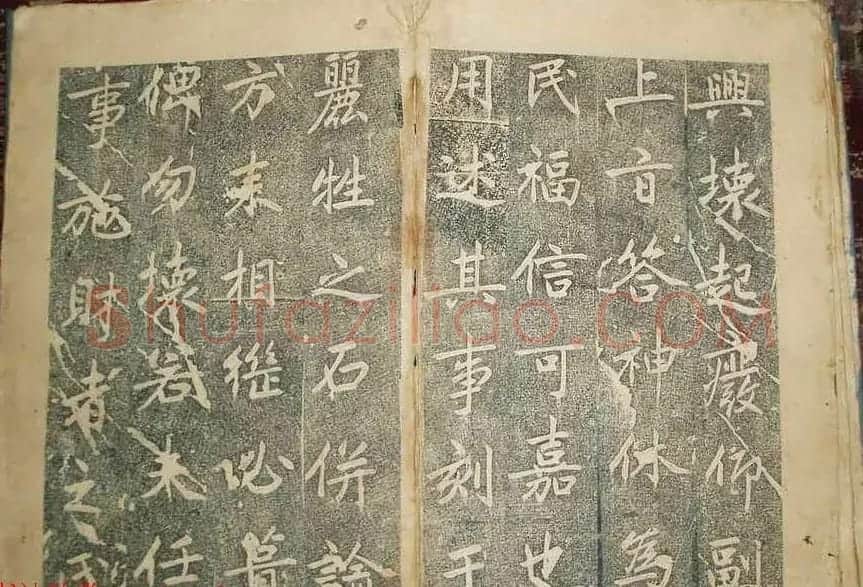 興壞起廢仰副
上旨答神休為
民福信可嘉也
用述其事刻于
麗牲之石併論
方来相繼必葺
俾勿壞若夫任
事施財者之
shufaziliao.com